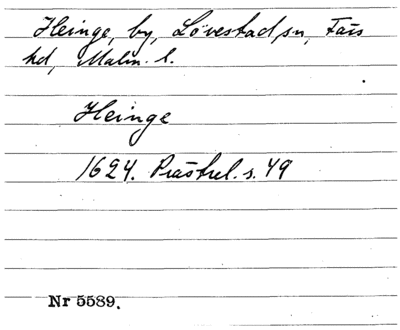 Heinge, by, Lövestad sn, Färs
hd, Malm. l.
Heinge
1624. Prästrel. s. 49
Nr 5589.